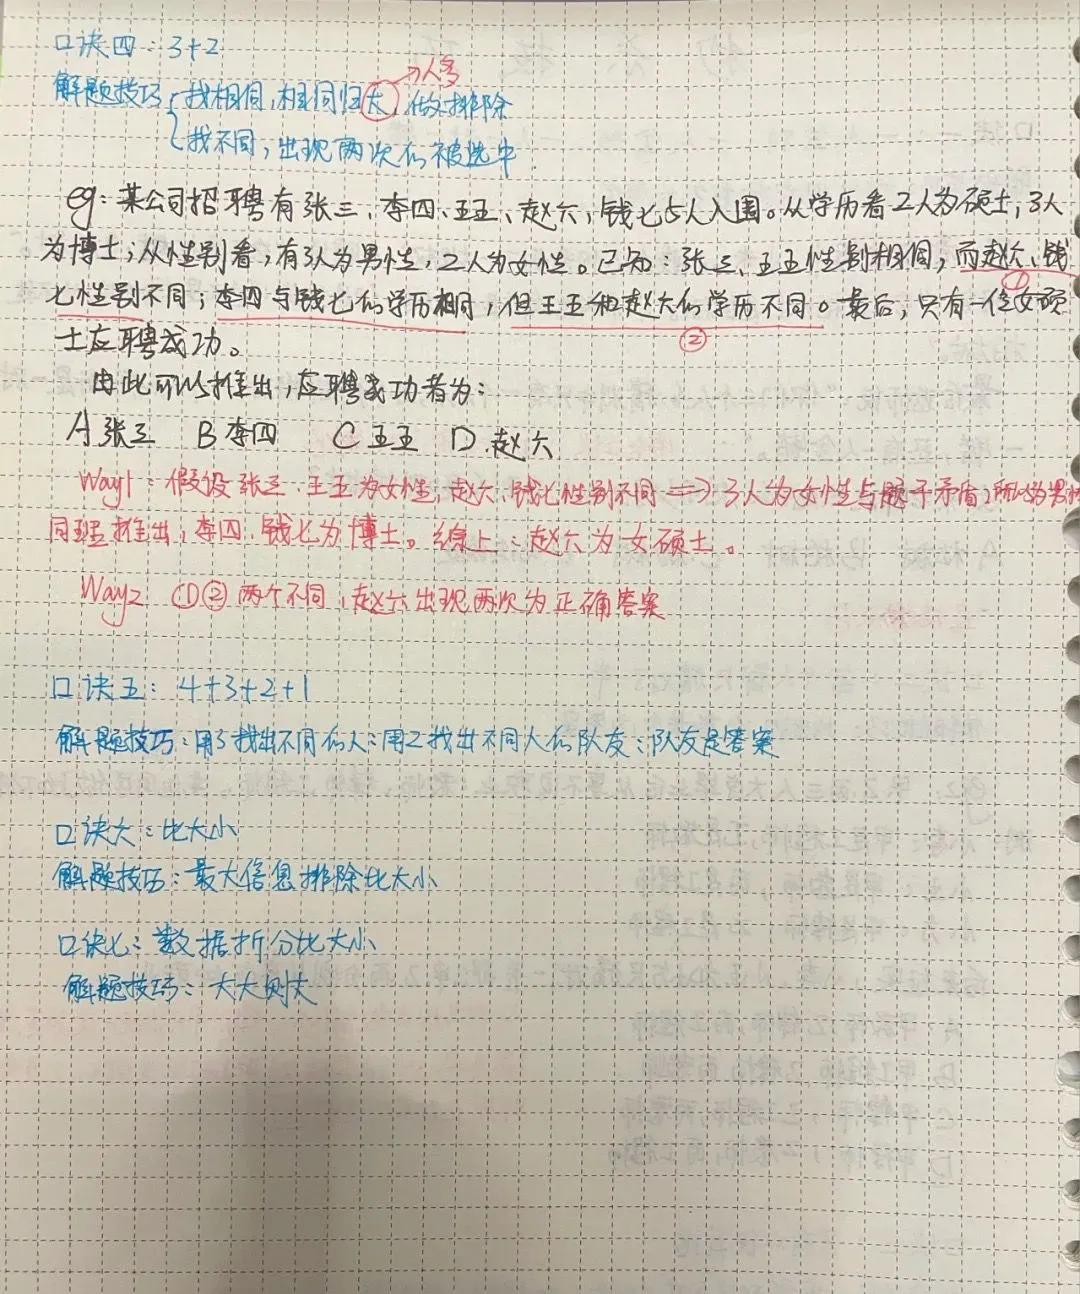 口诀四：3+2
→人多
解题技巧 找相同，相同归大，做排除
找不同，出现两次的被选中
eg：某公司招聘有张三、李四、王五、赵六、钱七5人入围。从学历看2人为硕士，3人
为博士；从性别看，有3人为男性，2人为女性。已知：张三、王五性别相同，而赵六、钱
①
七性别不同；李四与钱七的学历相同，但王五和赵六的学历不同。最后，只有一位女硕
②
士应聘成功。
由此可以推出，应聘成功者为：
A 张三 B 李四 C 王五 D.赵六
Way1：假设张三、王五为女性，赵六、钱七性别不同 ⟹ 3人为女性与题干矛盾，所以为男性
同理推出，李四、钱七为博士。综上：赵六为女硕士。
Way2 ①②两个不同，赵六出现两次为正确答案
口诀五：4+3+2+1
解题技巧：用3找出不同的人：用2找出不同人的队友：队友是答案
口诀六：比大小
解题技巧：最大信息排除比大小
口诀七：数据拆分比大小
解题技巧：大大则大